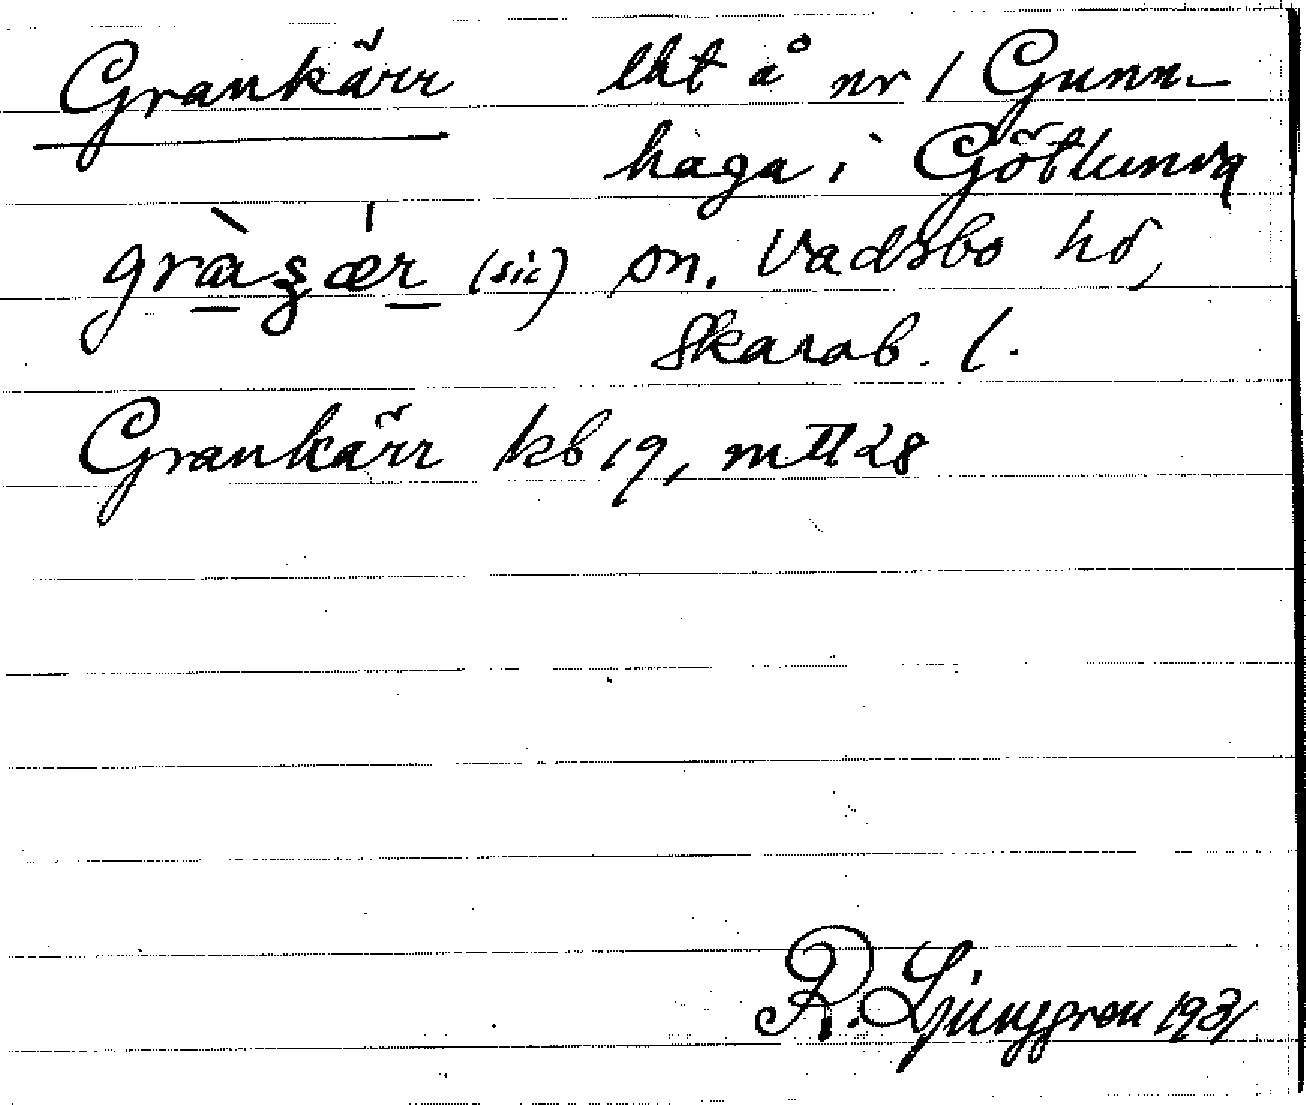 Grankärr lht å nr 1 Gunn-
haga i Götlunda
(sic) sn. Vadsbo hd,
Skarab. l.
Grankärr kb 19, mtl 28
R. Ljunggren 1931